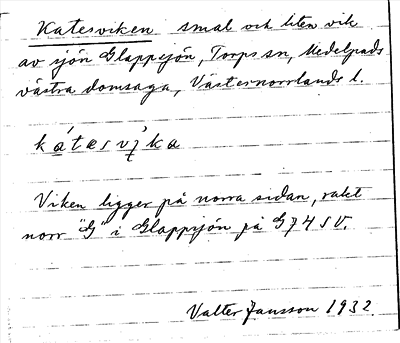 Katesviken smal och liten vik
av sjön Glappsjön, Torps sn, Medelpads
västra domsaga, Västernorrlands l.
Viken ligger på norra sidan, rakt
norr "G" i Glappsjön på G74SV.
Valter Jansson 1932.